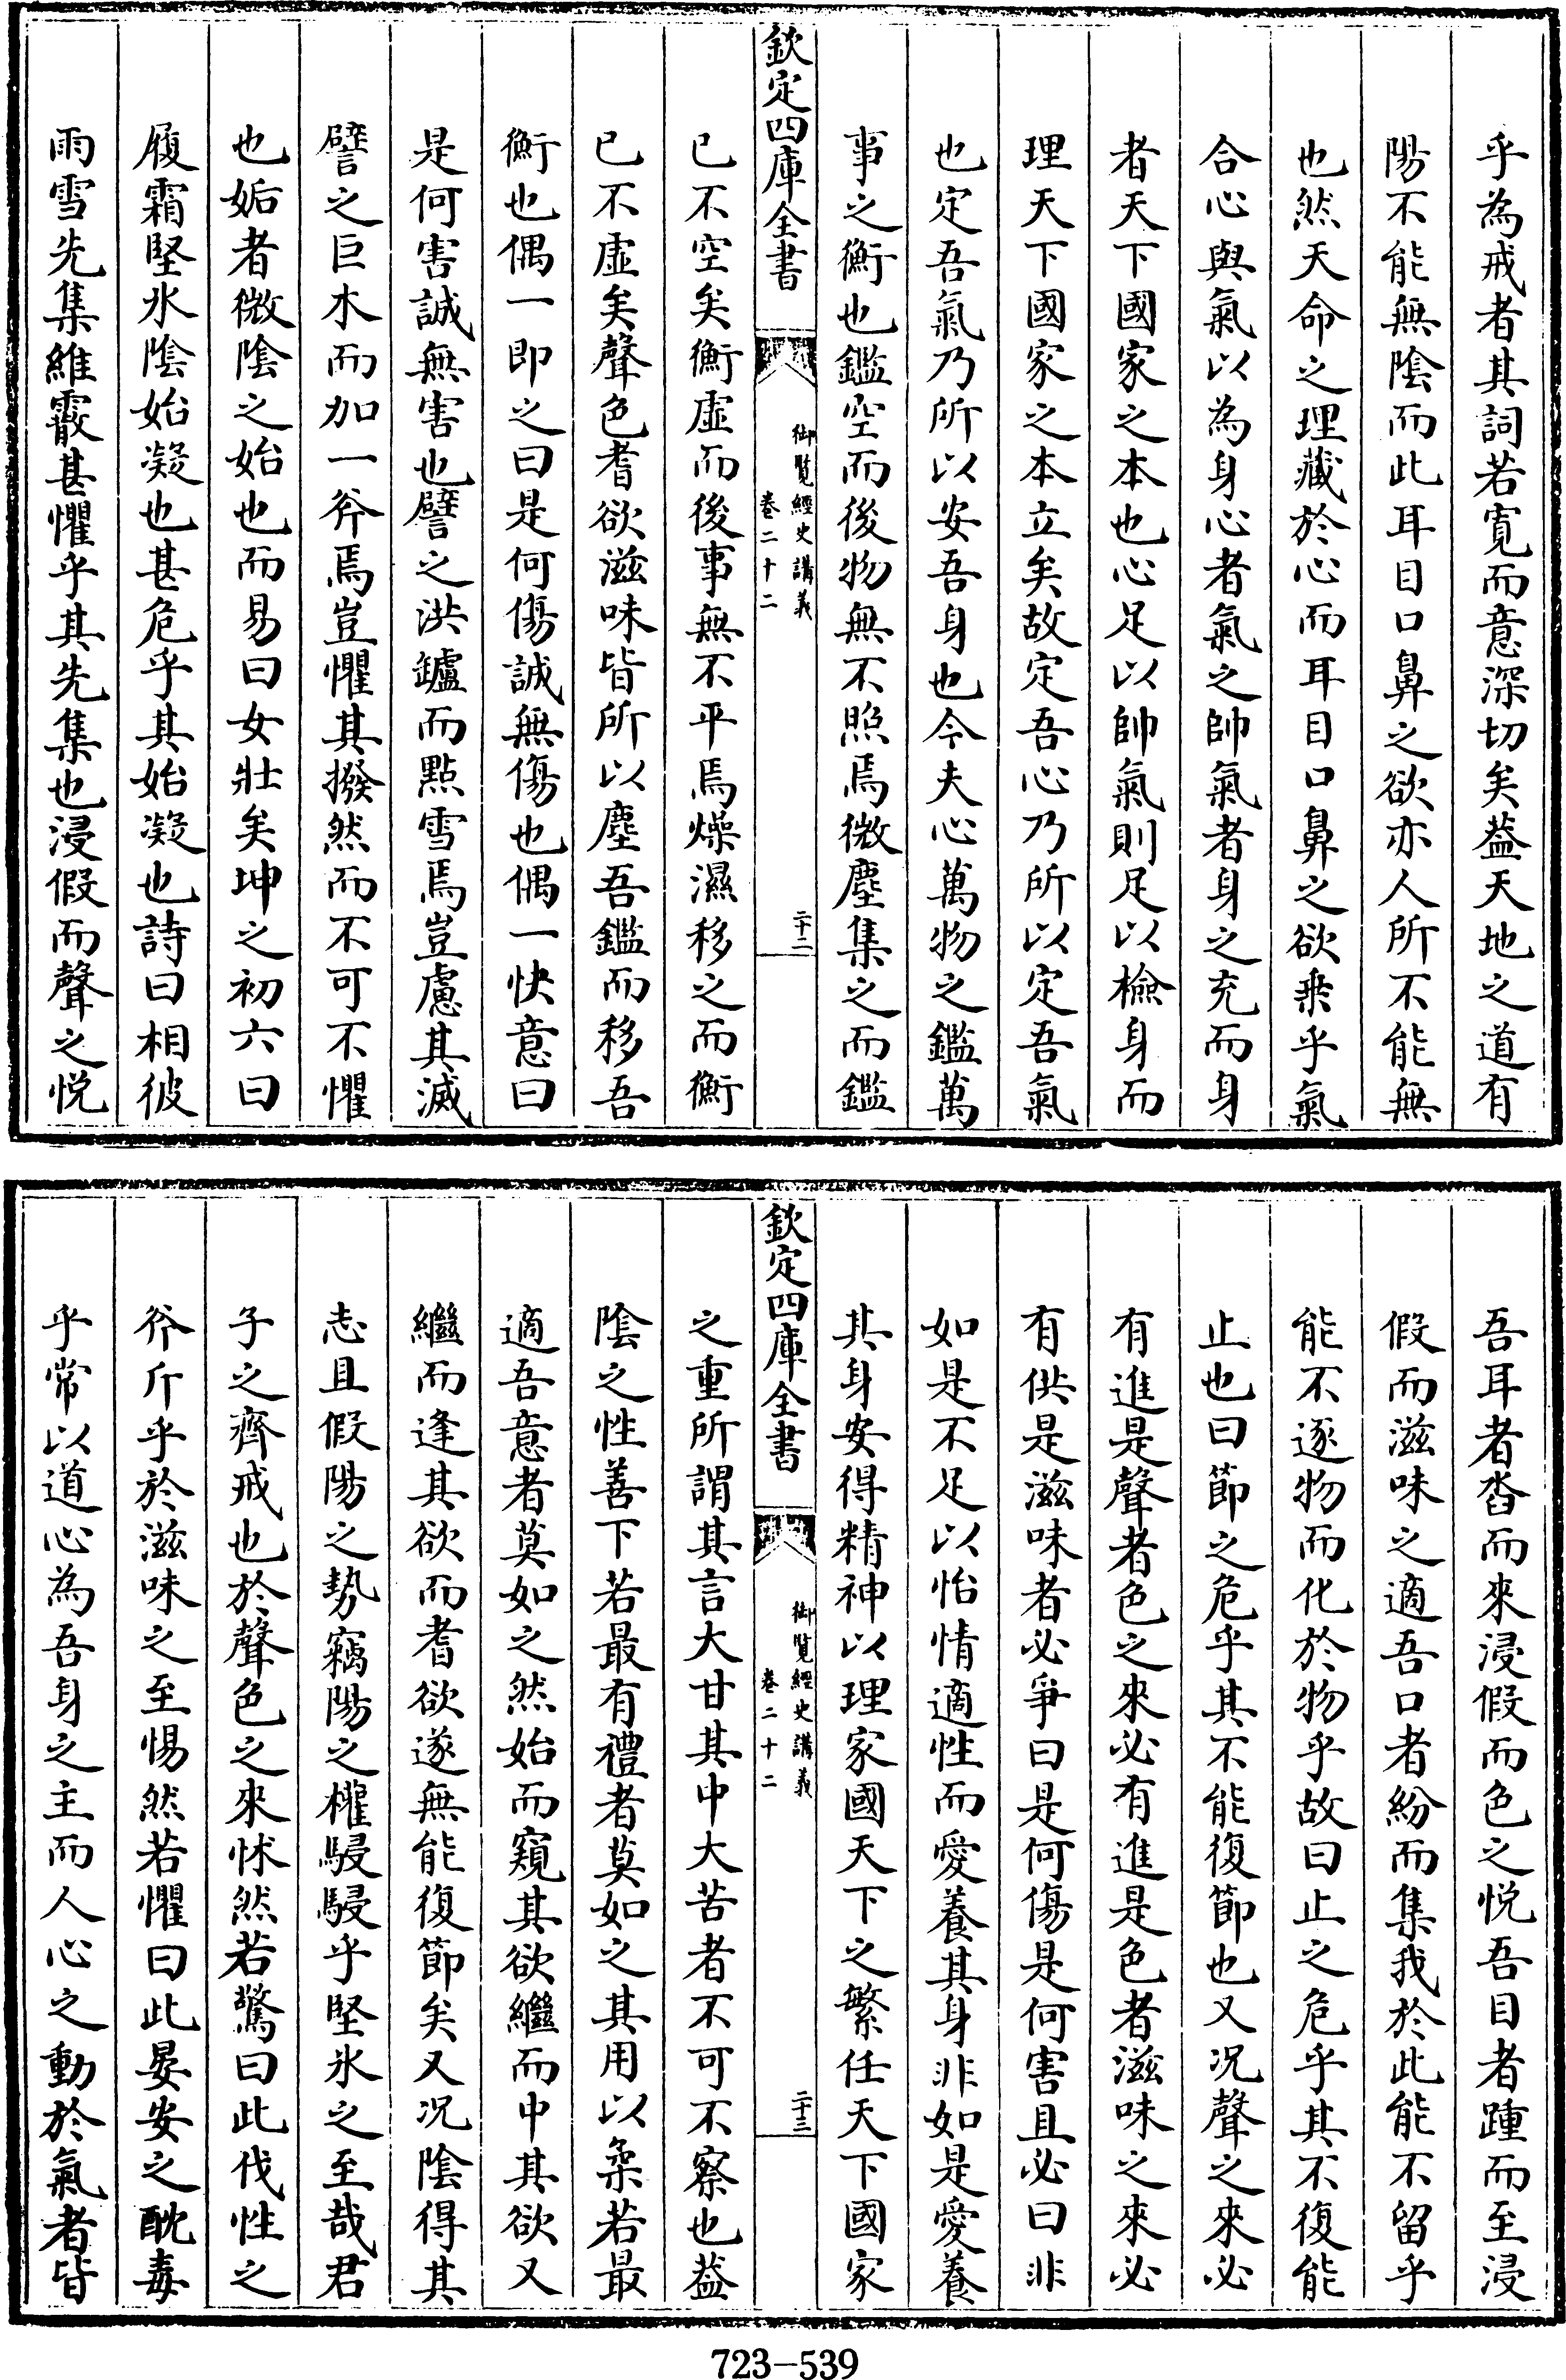 乎為戒者其詞若寬而意深切矣葢天地之道有
陽不能無陰而此耳目口鼻之欲亦人所不能無
也然天命之理藏於心而耳目口鼻之欲乗乎氣
合心與氣以為身心者氣之帥氣者身之充而身
者天下國家之本也心足以帥氣則足以檢身而
理天下國家之本立矣故定吾心乃所以定吾氣
也定吾氣乃所以安吾身也今夫心萬物之鑑萬
事之衡也鑑空而後物無不照焉微塵集之而鑑
欽定四庫全書
御覽經史講義
卷二十二
二十二
已不空矣衡虛而後事無不平焉燥濕移之而衡
已不虛矣聲色耆欲滋味皆所以塵吾鑑而移吾
衡也偶一即之曰是何傷誠無傷也偶一快意曰
是何害誠無害也譬之洪鑪而點雪焉豈慮其滅
譬之巨木而加一斧焉豈懼其撥然而不可不懼
也姤者微陰之始也而易曰女壯矣坤之初六曰
履霜堅氷陰始凝也甚危乎其始凝也詩曰相彼
雨雪先集維霰甚懼乎其先集也浸假而聲之悅
吾耳者沓而來浸假而色之悅吾目者踵而至浸
假而滋味之適吾口者紛而集我於此能不留乎
能不逐物而化於物乎故曰止之危乎其不復能
止也曰節之危乎其不能復節也又况聲之來必
有進是聲者色之來必有進是色者滋味之來必
有供是滋味者必爭曰是何傷是何害且必曰非
如是不足以怡情適性而愛養其身非如是愛養
其身安得精神以理家國天下之繁任天下國家
欽定四庫全書
御覽經史講義
卷二十二
二十三
之重所謂其言大甘其中大苦者不可不察也葢
陰之性善下若最有禮者莫如之其用以柔若最
適吾意者莫如之然始而窺其欲繼而中其欲又
繼而逢其欲而耆欲遂無能復節矣又况陰得其
志且假陽之勢竊陽之權駸駸乎堅氷之至哉君
子之齊戒也於聲色之來怵然若驚曰此伐性之
斧斤乎於滋味之至惕然若懼曰此晏安之酖毒
乎常以道心為吾身之主而人心之動於氣者皆
723-539